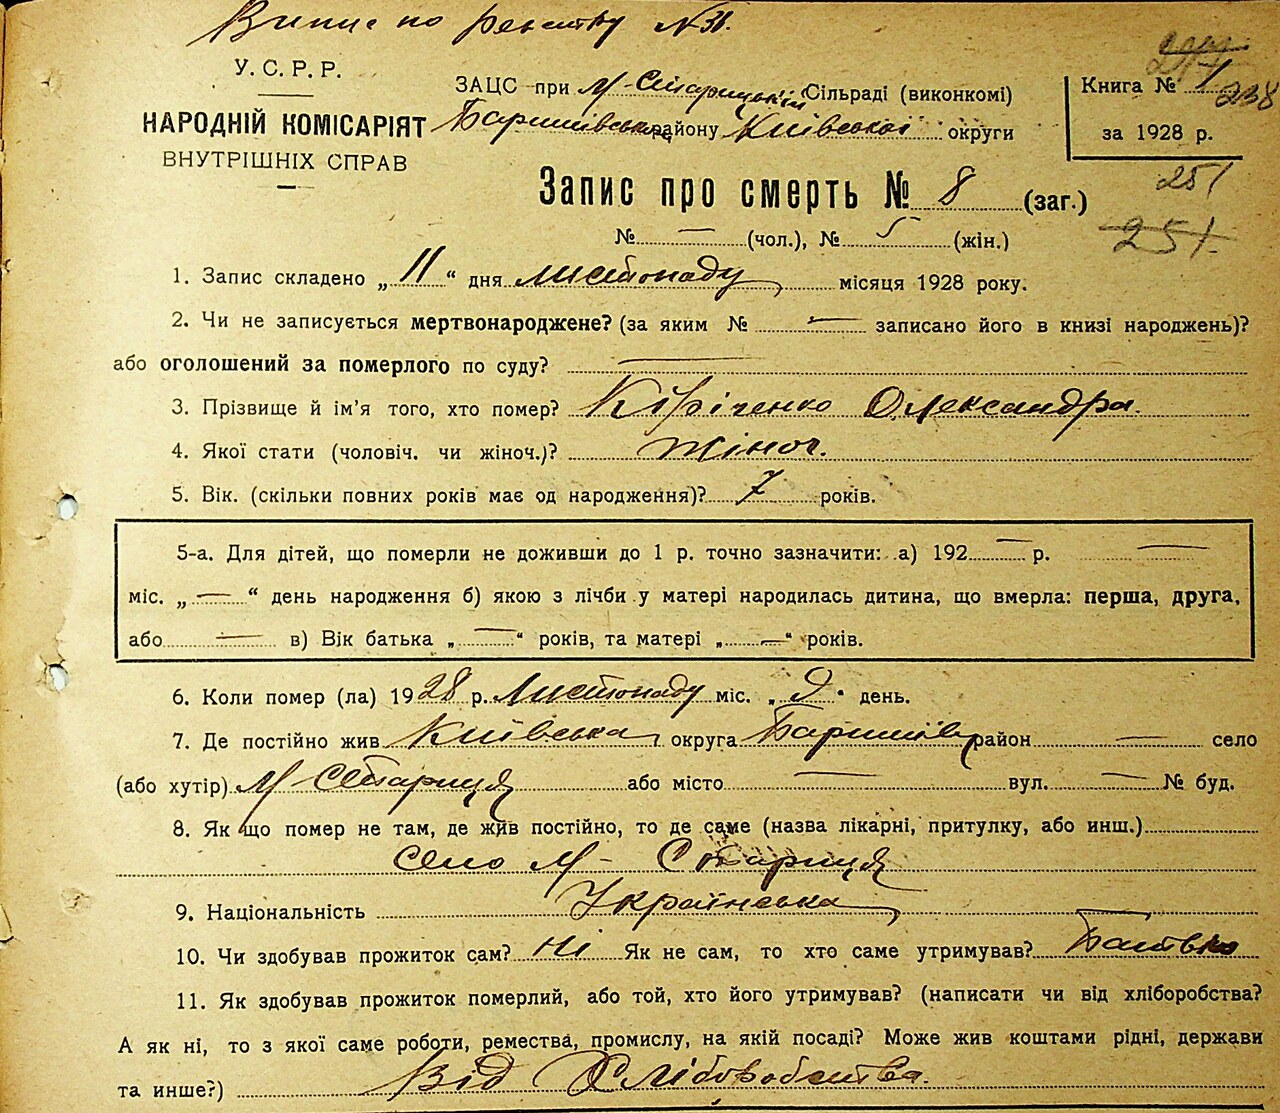 Випис по реєстру № 31.
У. С. Р. Р.
НАРОДНІЙ КОМІСАРІЯТ
ВНУТРІШНІХ СПРАВ
ЗАЦС при М-Старицькій Сільраді (виконкомі)
Баришівськ району Київської округи
Книга № 1
238
за 1928 р.
251
251
Запис про смерть № 8 (заг.)
№ — (чол.), № 5 (жін.)
1. Запис складено „11" дня листопаду місяця 1928 року.
2. Чи не записується мертвонароджене? (за яким № — записано його в книзі народжень)?
або оголошений за померлого по суду? —
3. Прізвище й ім'я того, хто помер? Кіріченко Олександра.
4. Якої стати (чоловіч. чи жіноч.)? жіноч.
5. Вік. (скільки повних років має од народження)? 7 років.
5-а. Для дітей, що померли не доживши до 1 р. точно зазначити: а) 192 — р. —
міс. „ — " день народження б) якою з лічби у матері народилась дитина, що вмерла: перша, друга,
або — в) Вік батька „ — " років, та матері „ — " років.
6. Коли помер (ла) 1928 р. Листопаду міс. „ 9 " день.
7. Де постійно жив Київська округа Баришів район — село
(або хутір) М-Стариця або місто — вул. — № буд.
8. Як що помер не там, де жив постійно, то де саме (назва лікарні, притулку, або инш.)
село М- Стариця
9. Національність Українська
10. Чи здобував прожиток сам? Ні Як не сам, то хто саме утримував? Батько
11. Як здобував прожиток померлий, або той, хто його утримував? (написати чи від хліборобства?
А як ні, то з якої саме роботи, ремества, промислу, на якій посаді? Може жив коштами рідні, держави
та инше?) Від Хліборобства.